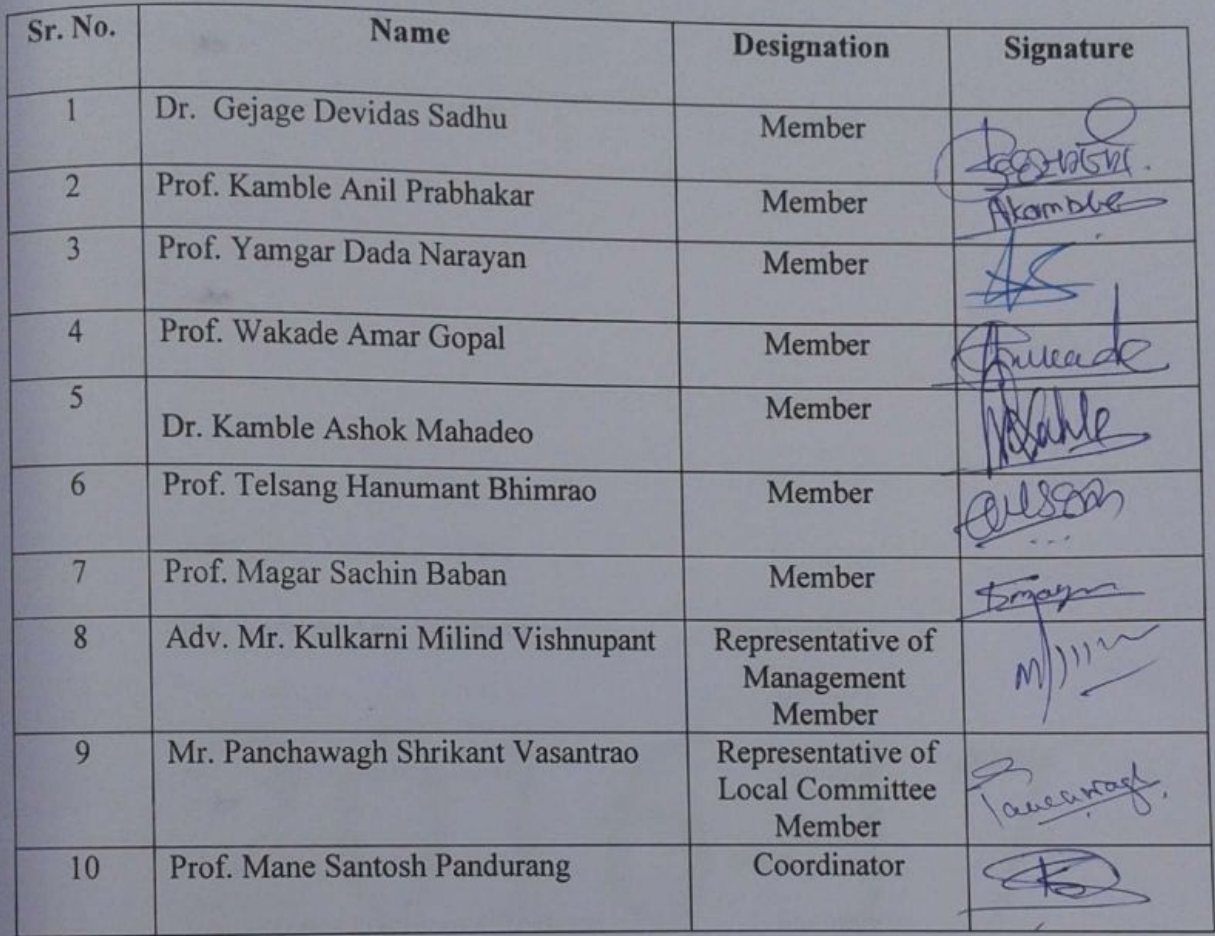 Sr. No. Name Designation Signature
1 Dr. Gejage Devidas Sadhu Member
2 Prof. Kamble Anil Prabhakar Member Akamble
3 Prof. Yamgar Dada Narayan Member
4 Prof. Wakade Amar Gopal Member
5 Dr. Kamble Ashok Mahadeo Member
6 Prof. Telsang Hanumant Bhimrao Member
7 Prof. Magar Sachin Baban Member
8 Adv. Mr. Kulkarni Milind Vishnupant Representative of
Management
Member
9 Mr. Panchawagh Shrikant Vasantrao Representative of
Local Committee
Member
10 Prof. Mane Santosh Pandurang Coordinator